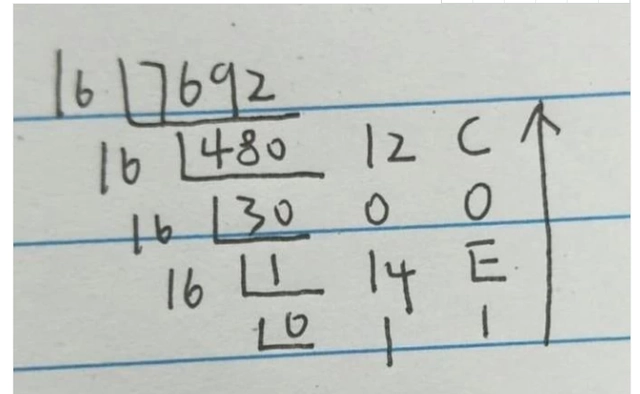 16 7692
16 480 12 C
16 30 0 0
16 1 14 E
0 1 1